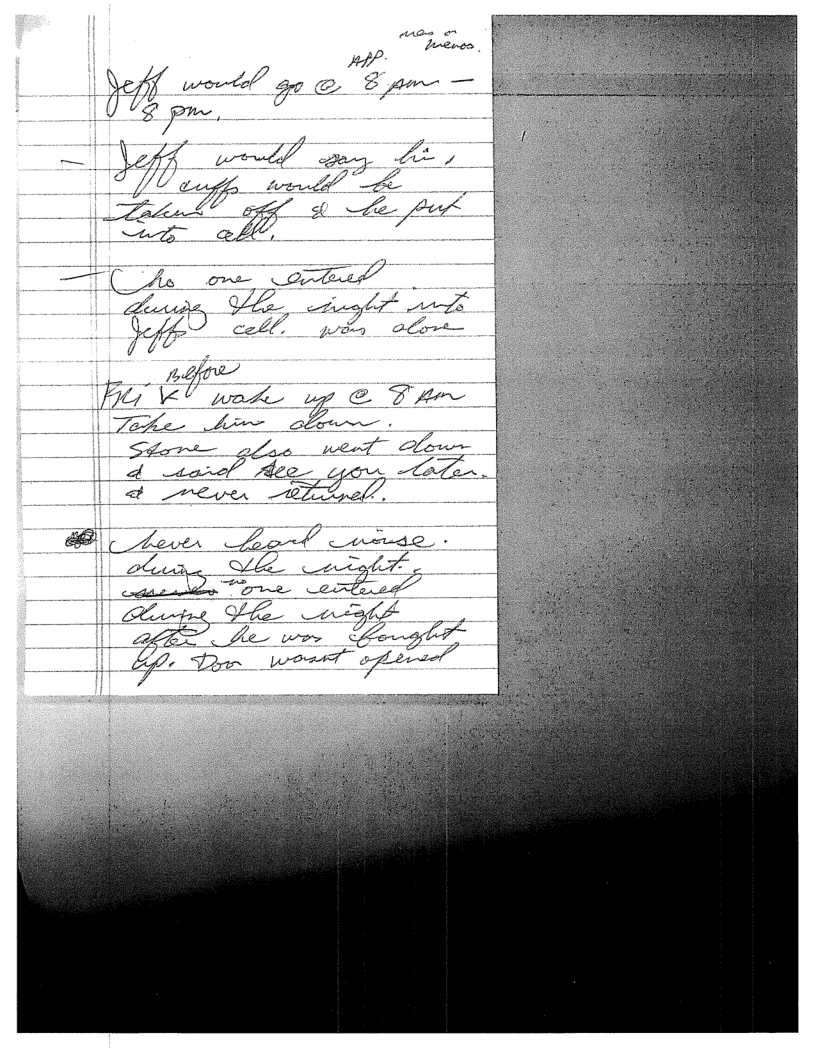 mas o
menos.
APP.
Jeff would go @ 8 Am —
8 pm.
— Jeff would say hi,
cuffs would be
taken off & he put
into cell.
— No one entered
during the night into
Jeffs cell. was alone
Before
FRI V wake up @ 8 Am
Take him down.
Stone also went down
& said see you later.
& never returned.
Never heard noise.
during the night.
no one entered
during the night
after he was bought
up. Door wasnt opened